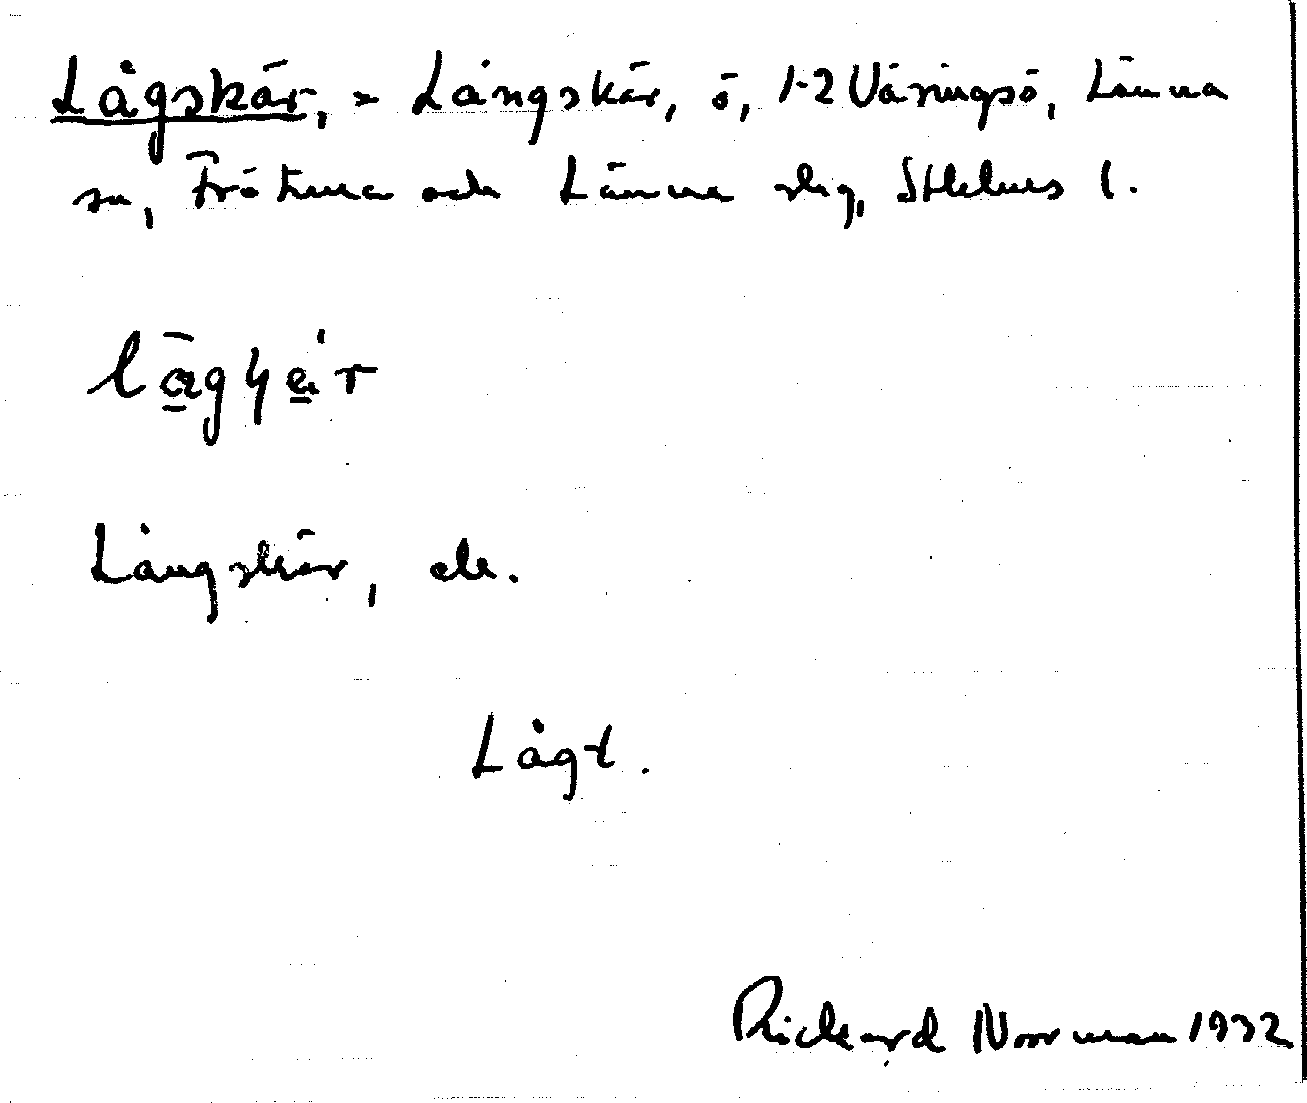 Lågskär, = Långskär, ö, 1-2 Väringsö, Länna
sn, Frötuna och Länna slg, Sthlms l.
Långskär, ek.
Lågt.
Rickard Norrman 1932